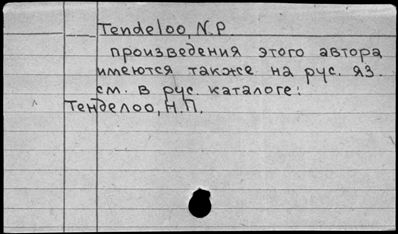 Tendeloo, N.P.
произведения этого автора
имеются также на рус. яз.
см. в рус. каталоге:
Тенделоо, Н.П.